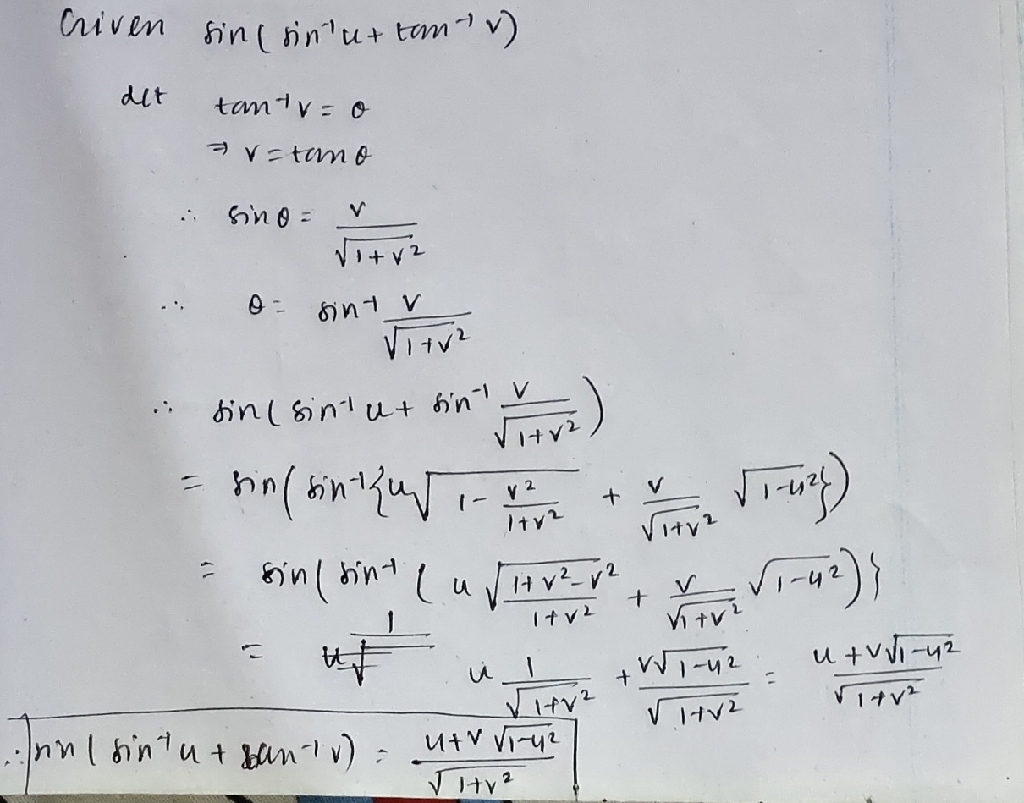 Given sin( sin⁻¹u + tan⁻¹ v)
let tan⁻¹v = θ
⇒ v = tan θ
∴ sin θ = v/√(1+v²)
∴ θ = sin⁻¹ v/√(1+v²)
∴ sin( sin⁻¹ u + sin⁻¹ v/√(1+v²) )
= sin( sin⁻¹{u√(1 - v²/(1+v²)) + v/√(1+v²) √(1-u²)})
= sin( sin⁻¹ ( u √((1+v²-v²)/(1+v²)) + v/√(1+v²) √(1-u²) )}
= u 1/√(1+v²) + v√(1-u²)/√(1+v²) = (u + v√(1-u²))/√(1+v²)
∴ sin( sin⁻¹u + tan⁻¹v) = (u+v √(1-u²))/√(1+v²)